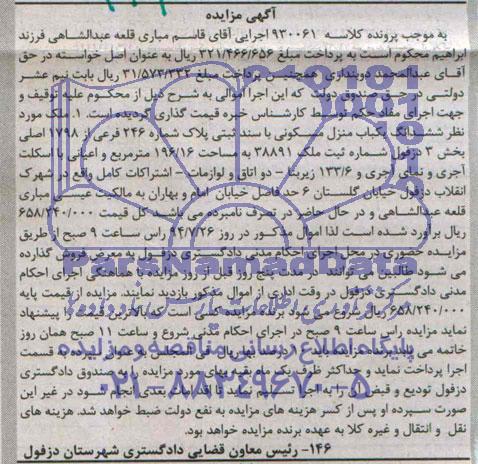 آگهی مزایده
به موجب پرونده کلاسه ۹۳۰۰۶۱ اجرایی آقای قاسم مباری قلعه عبدالشاهی فرزند
ابراهیم محکوم است به پرداخت مبلغ ۳۲۱/۴۶۶/۶۵۶ ریال به عنوان اصل خواسته در حق
آقای عبدالمحمد دوبنداری همچنین پرداخت مبلغ ۳۱/۵۷۳/۳۳۲ ریال بابت نیم عشر
دولتی در حق صندوق دولت که این اجرا اموالی به شرح ذیل از محکوم علیه توقیف و
جهت اجرای مفاد حکم توسط کارشناس خبره قیمت گذاری گردیده است. ۱. ملک مورد
نظر ششدانگ یکباب منزل مسکونی با سند ثبتی پلاک شماره ۲۴۶ فرعی از ۱۷۹۸ اصلی
بخش ۳ دزفول شماره ثبت ملک ۳۸۸۹۱ به مساحت ۱۹۶/۱۶ مترمربع و اعیانی با اسکلت
آجری و نمای آجری و ۱۳۳/۶ زیربنا – دو اتاق و لوازمات – اشتراکات کامل واقع در شهرک
انقلاب دزفول خیابان گلستان ۶ حد فاصل خیابان امام و بهاران به مالکیت عیسی مباری
قلعه عبدالشاهی و در حال حاضر در تصرف نامبرده می باشد. کل قیمت ۶۵۸/۲۴۰/۰۰۰
ریال برآورد شده است لذا اموال مذکور در روز ۹۴/۷/۲۶ راس ساعت ۹ صبح از طریق
مزایده حضوری در محل اجرای احکام مدنی دادگستری دزفول به معرض فروش گذارده
می شود طالبین می توانند در مدت پنج روز قبل از روز مزایده با هماهنگی اجرای احکام
مدنی دادگستری دزفول در وقت اداری از اموال مذکور بازدید نمایند. مزایده از قیمت پایه
۶۵۸/۲۴۰/۰۰۰ ریال شروع می شود برنده مزایده کسی است که بالاترین قیمت را پیشنهاد
نماید مزایده راس ساعت ۹ صبح در اجرای احکام مدنی شروع و ساعت ۱۱ صبح همان روز
خاتمه می یابد برنده مزایده باید درصد بهای فی المجلس به عنوان سپرده به قسمت
اجرا پرداخت نماید و حداکثر ظرف یک ماه بقیه بهای مورد مزایده را به صندوق دادگستری
دزفول تودیع و قبض آن را به اجرا تسلیم نماید تا اقدامات بعدی انجام شود در غیر این
صورت سپرده او پس از کسر هزینه های مزایده به نفع دولت ضبط خواهد شد. هزینه های
نقل و انتقال و غیره کلا به عهده برنده مزایده خواهد بود.
۱۴۶- رئیس معاون قضایی دادگستری شهرستان دزفول
ParsNamadData
پایگاه اطلاع رسانی مناقصه و مزایده
۰۲۱-۸۸۳۴۹۶۷۰-۵